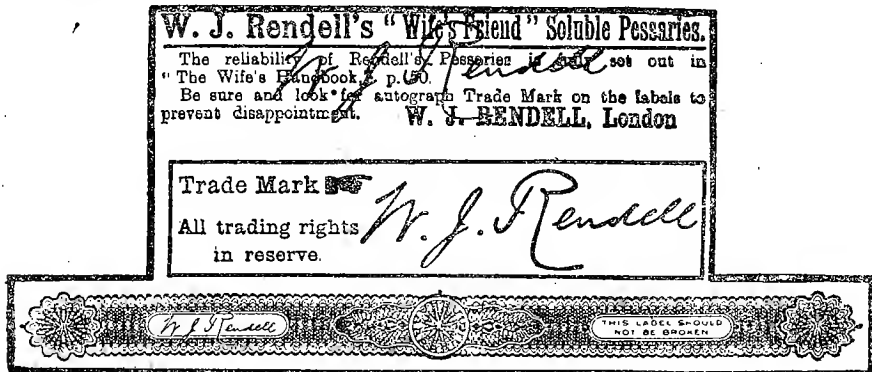 W. J. Rendell's "Wife's Friend" Soluble Pessaries.
The reliability of Rendell's Pessaries is fully set out in
"The Wife's Handbook," p. 50.
Be sure and look for autograph Trade Mark on the labels to
prevent disappointment. W. J. RENDELL, London
W J Rendell
Trade Mark
W. J. Rendell
All trading rights
in reserve.
W J Rendell
THIS LABEL SHOULD
NOT BE BROKEN